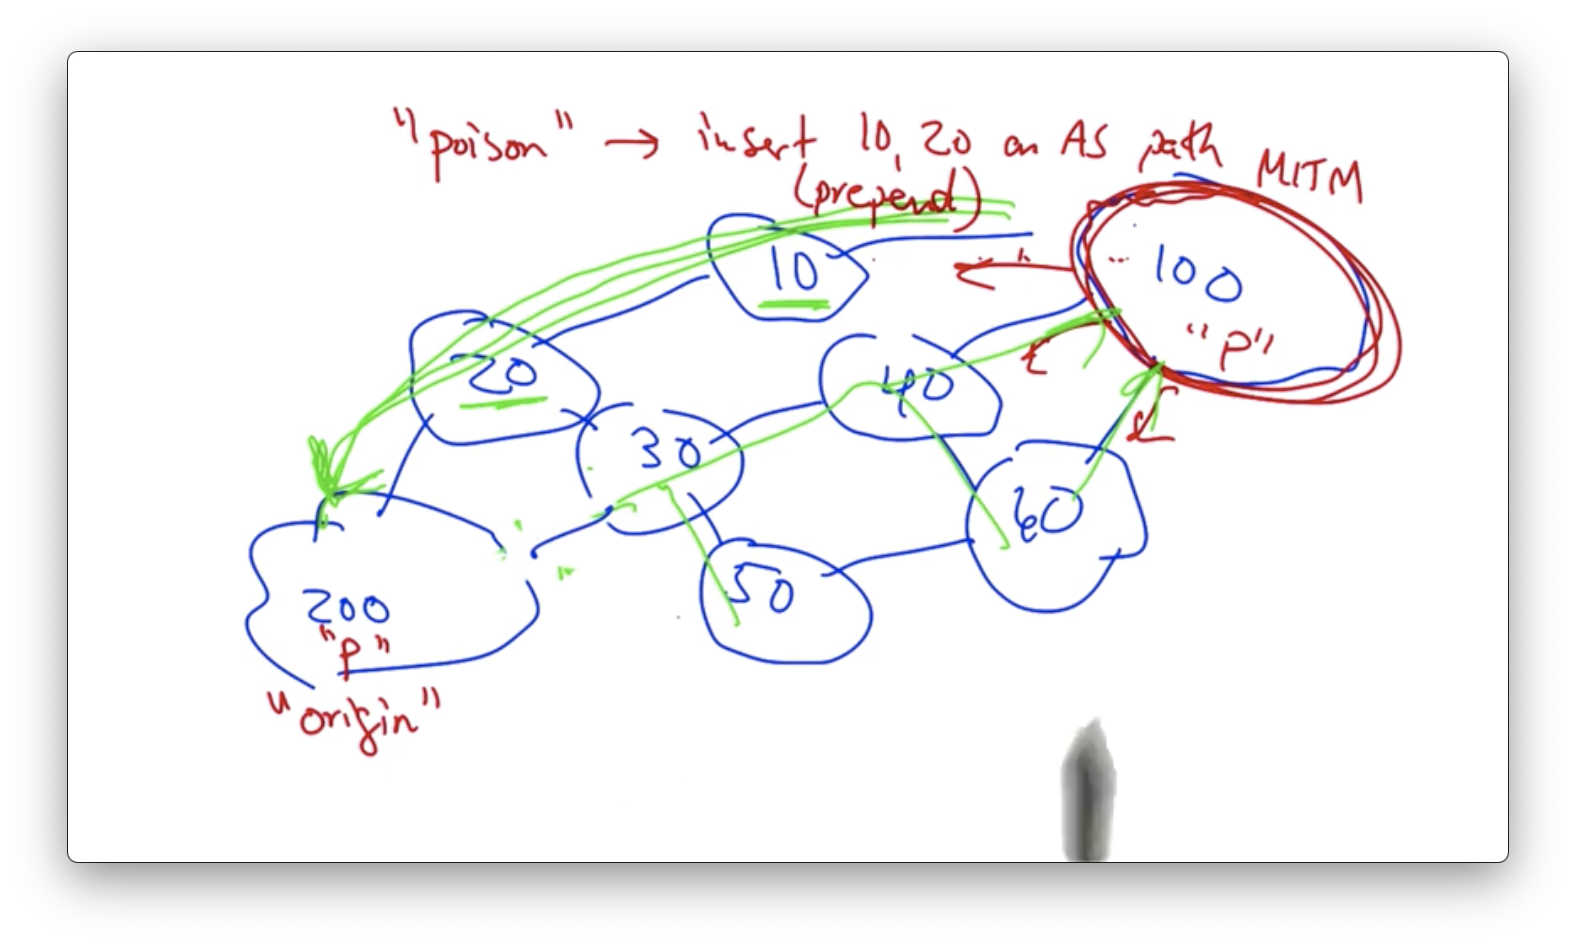 "poison" → insert 10, 20 on AS path
(prepend)
MITM
10
100
"P"
20
40
30
60
50
200
"P"
"origin"